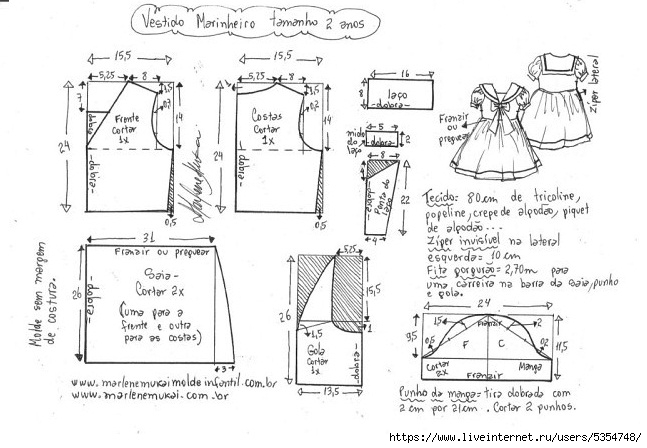 Vestido Marinheiro tamanho 2 anos
15,5
5,25
8
1,5
7
0,7
14
24
dobra
Frente
Cortar
1x
dobra
0,5
15,5
5,25
8
1,5
0,2
14
24
Costas
Cortar
1x
dobra
0,5
16
8
laço
dobra
5
miolo
do
laço
dobra
2
8
dobra
Ponta do
laço
22
4
Franzir
ou
preguear
Zíper lateral
Tecido: 80cm de tricoline,
popeline, crepe de algodão, piquet
de algodão...
Zíper invisível na lateral
esquerda = 10 cm
Fita gorgurão = 2,70m para
uma carreira na barra da saia, punho
e gola.
31
Franzir ou preguear
26
dobra
Saia
Cortar 2x
(uma para a
frente e outra
para as costas)
3
Molde sem margem
de costura.
5,25
15,5
26
1,5
1
Gola
Cortar
1x
dobra
13,5
24
1,5
Franzir
2
9,5
0,5
F
C
0,2
11,5
Cortar
2x
Manga
Franzir
Punho da manga = tira dobrada com
2 cm por 21cm. Cortar 2 punhos.
www.marlenemukaimoldeinfantil.com.br
www.marlenemukai.com.br
https://www.liveinternet.ru/users/5354748/